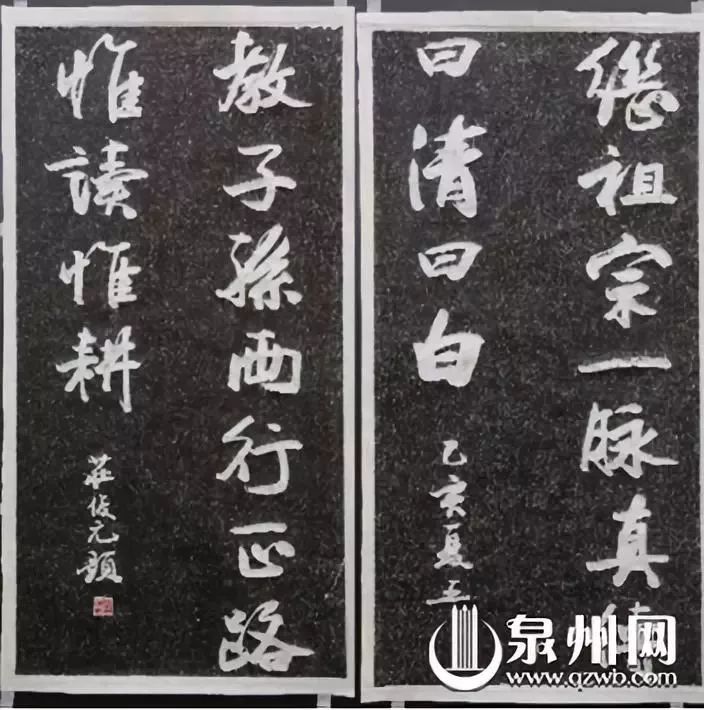 繼祖宗一脈真傳
曰清曰白
乙亥夏五
教子孫兩行正路
惟讀惟耕
莊俊元題
泉州网
www.qzwb.com